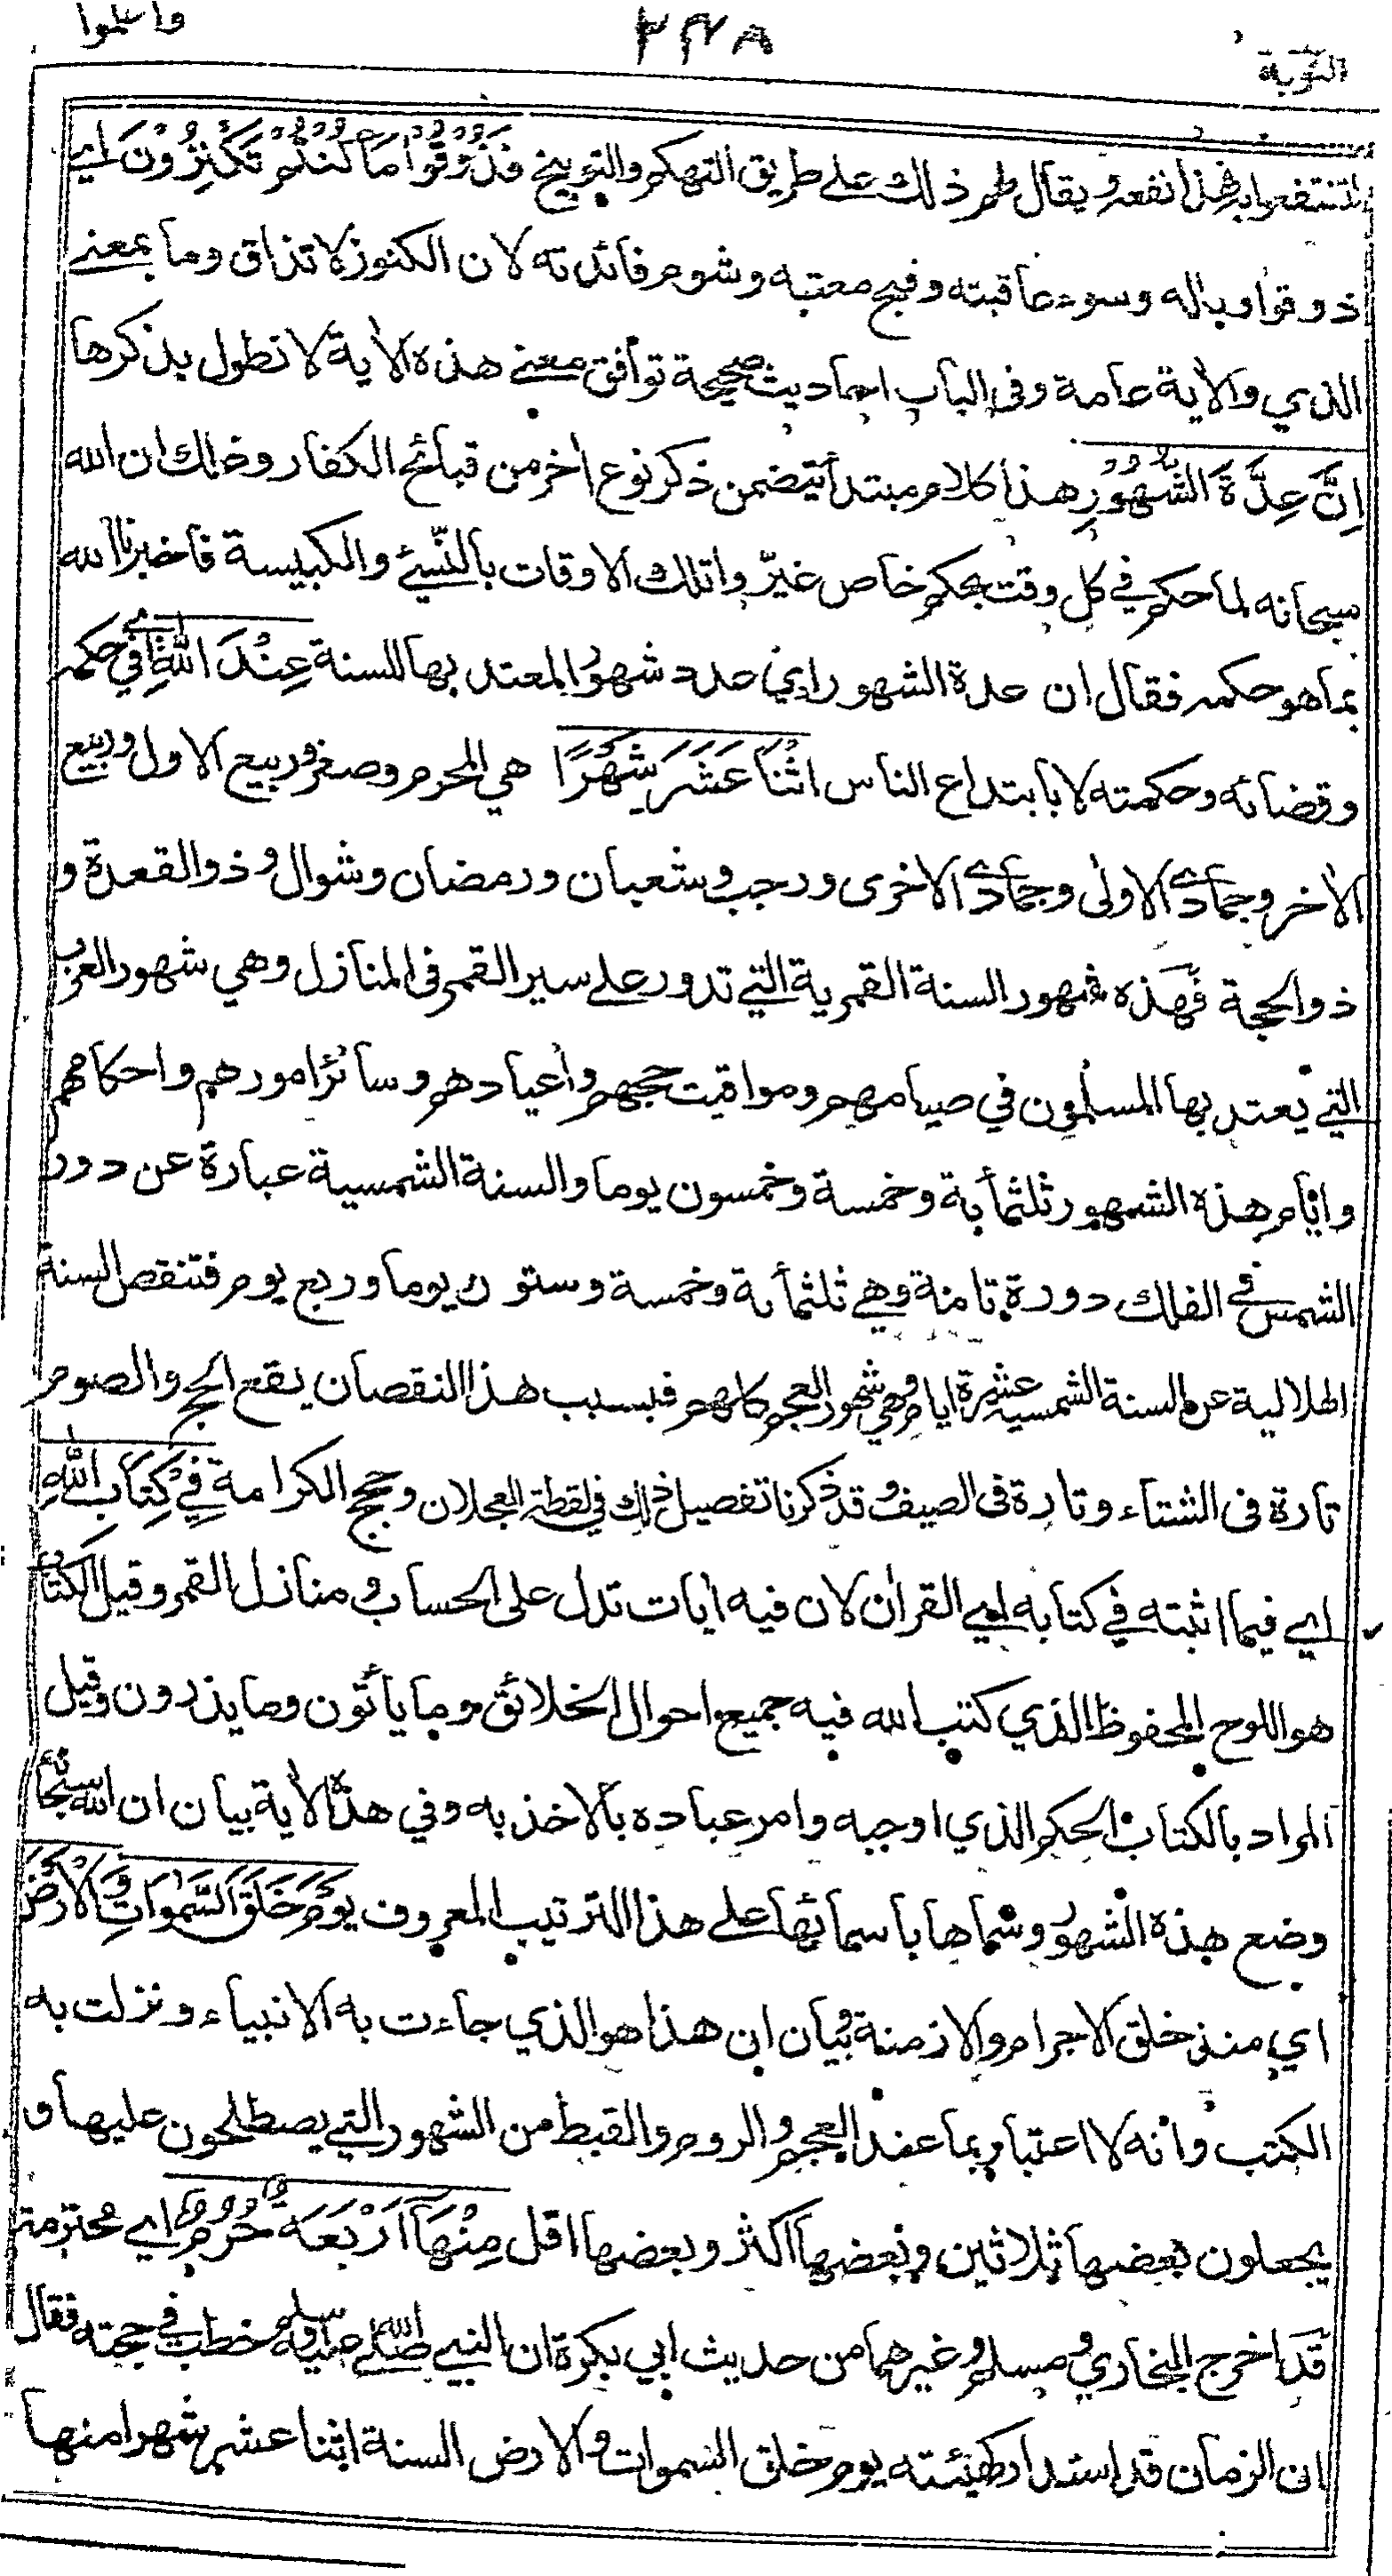 التوبة
٣٤٨
واعلموا
لتنتفعوا به فهذا نفعه ويقال لهم ذلك على طريق التهكم والتوبيخ فَذُوقُوا مَا كُنْتُمْ تَكْنِزُونَ اي
ذوقوا وباله وسوء عاقبته وقبح مغبته وشوم فائدته لان الكنوز لا تذاق وما بمعنى
الذي والاية عامة وفي الباب احاديث صحيحة توافق معنى هذه الاية لا نطول بذكرها
اِنَّ عِدَّةَ الشُّهُورِ هذا كلام مبتدأ يتضمن ذكر نوع اخر من قبائح الكفار وذلك ان الله
سبحانه لما حكم في كل وقت بحكم خاص غيّروا تلك الاوقات بالنسيء والكبيسة فاخبرنا الله
بما هو حكمه فقال ان عدة الشهور اي عدد شهور المعتد بها للسنة عِنْدَ اللّٰهِ اي في حكمه
وقضائه وحكمته لا بابتداع الناس اثْنَا عَشَرَ شَهْرًا هي المحرم وصفر وربيع الاول وربيع
الاخر وجمادى الاولى وجمادى الاخرى ورجب وشعبان ورمضان وشوال وذو القعدة و
ذو الحجة فهذه شهور السنة القمرية التي تدور على سير القمر في المنازل وهي شهور العرب
التي يعتد بها المسلمون في صيامهم ومواقيت حجهم واعيادهم وسائر امورهم واحكامهم
وايام هذه الشهور ثلثمأية وخمسة وخمسون يوما والسنة الشمسية عبارة عن دور
الشمس في الفلك دورة تامة وهي ثلثمأية وخمسة وستون يوما وربع يوم فتنقص السنة
الهلالية عن السنة الشمسية عشرة ايام وهي شهور العجم كلهم فبسبب هذا النقصان يقع الحج والصوم
تارة في الشتاء وتارة في الصيف وقد ذكرنا تفصيل ذلك في لقطة العجلان وحجج الكرامة فِي كِتَابِ اللّٰهِ
اي فيما اثبته في كتابه اي القران لان فيه ايات تدل على الحساب ومنازل القمر وقيل الكتاب
هو اللوح المحفوظ الذي كتب الله فيه جميع احوال الخلائق وما يأتون وما يذرون وقيل
المراد بالكتاب الحكم الذي اوجبه وامر عباده بالاخذ به وفي هذه الاية بيان ان الله سبحانه
وضع هذه الشهور وسماها باسمائها على هذا الترتيب المعروف يَوْمَ خَلَقَ السَّمٰوَاتِ وَالْاَرْضَ
اي منذ خلق الاجرام والازمنة وبيان ان هذا هو الذي جاءت به الانبياء ونزلت به
الكتب وانه لا اعتبار بما عند العجم والروم والقبط من الشهور التي يصطلحون عليها و
يجعلون بعضها ثلاثين وبعضها اكثر وبعضها اقل مِنْهَا اَرْبَعَةٌ حُرُمٌ اي محترمة
قد اخرج البخاري ومسلم وغيرهما من حديث ابي بكرة ان النبي صلى الله عليه وسلم خطب في حجته فقال
ان الزمان قد استدار كهيئته يوم خلق السموات والارض السنة اثنا عشر شهرا منها